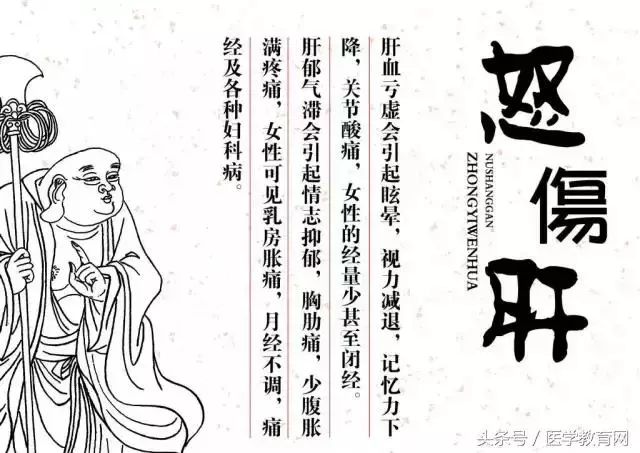 怒傷肝
NUSHANGGAN
ZHONGYIWENHUA
肝血亏虚会引起眩晕，视力减退，记忆力下
降，关节酸痛，女性的经量少甚至闭经。
肝郁气滞会引起情志抑郁，胸肋痛，少腹胀
满疼痛，女性可见乳房胀痛，月经不调，痛
经及各种妇科病。
头条号／医学教育网